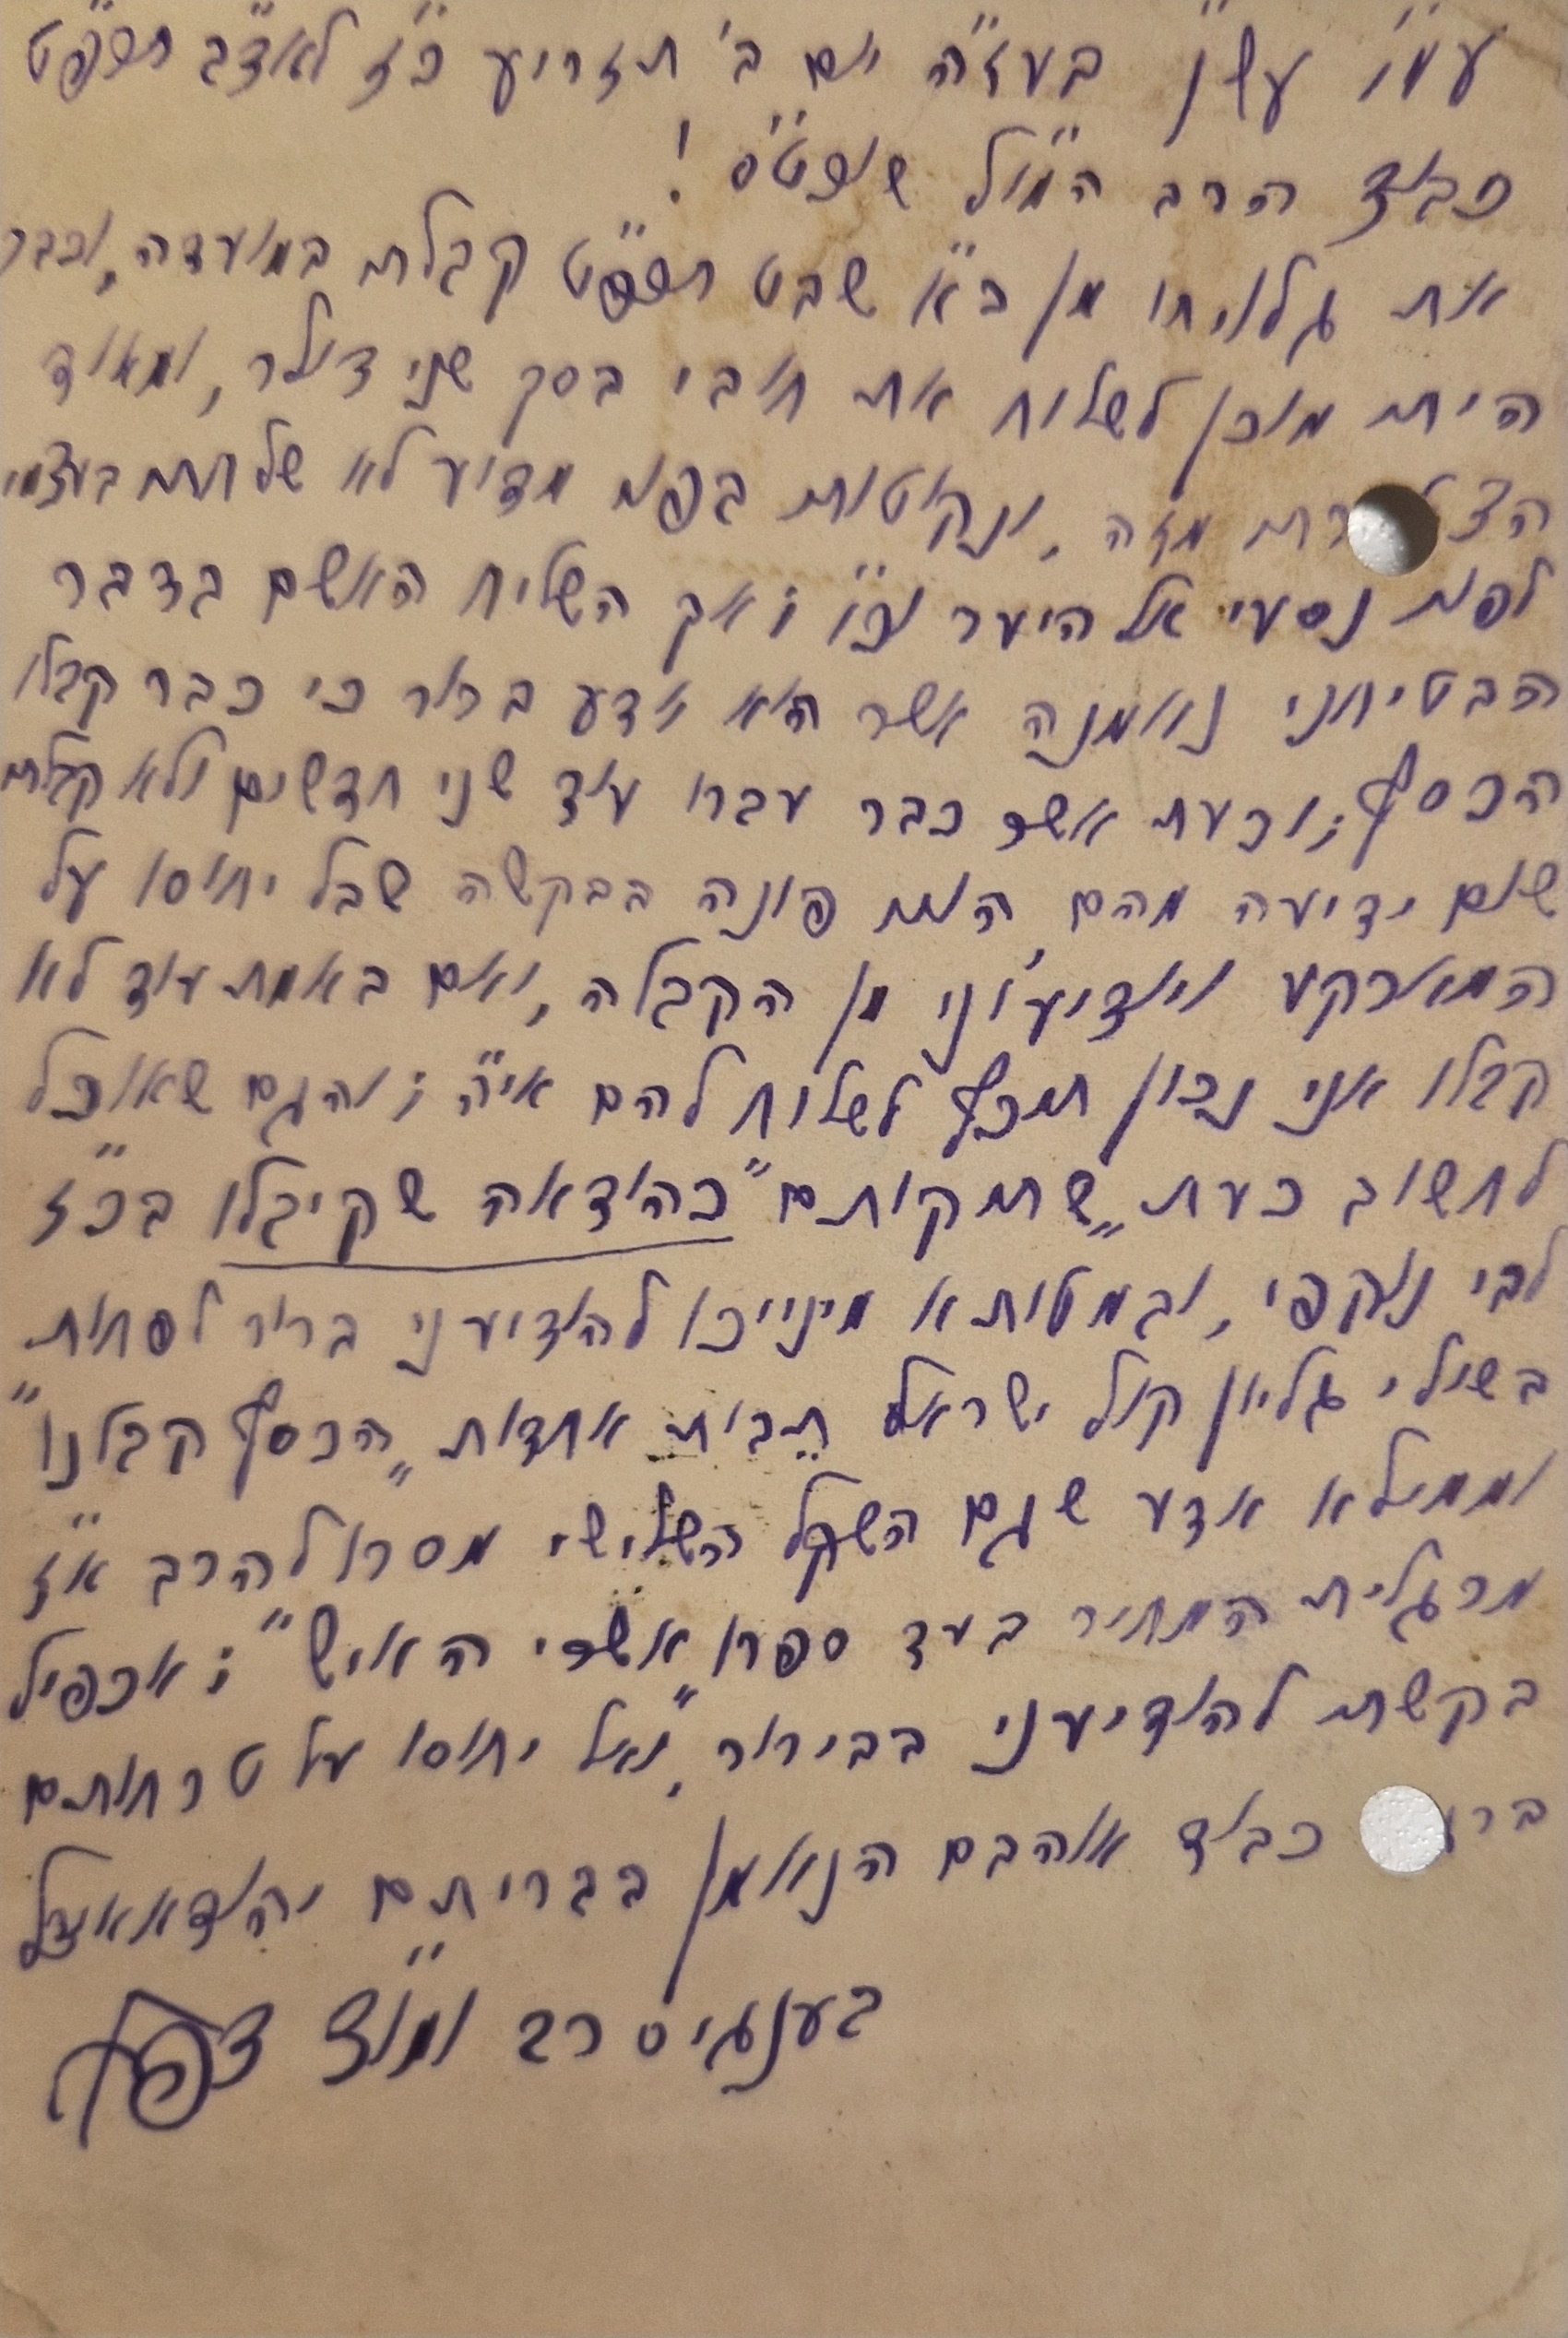 עמ"י עש"ן בעזה"י יום ב' תזריע כ"ז לאד"ב תרפ"ט
כבוד הרב המו"ל שופט"ס!
את גלויתו מן כ"א שבט תרפ"ט קבלתי במועדה, וכבר
הייתי מוכן לשלוח את חובי בסך שני דולר, ומאוד
מזה, ונקוטותי בפני מדוע לא שלחתי בעצמי
לפני נסעי אל היער וכו'; אך השליח האשם בדבר
הבטיחני נאמנה אשר הוא יודע ברור כי כבר קבלו
הכסף; וכעת אשר כבר עברו עוד שני חדשים ולא קבלתי
שום ידיעה מהם, הנני פונה בבקשה שבל יחוסו על
המארקע ויודיעוני מן הקבלה, ואם באמת עוד לא
קבלו אני נכון תיכף לשלוח להם אי"ה; והגם שאוכל
לחשוב כעת "שתיקותם" כהודאה שקיבלו בכ"ז
לבי נוקפי, ובמטותא מינייכו להודיעני ברור לפחות
בשולי גליון קול ישראל תבות אחדות "הכסף קבלנו"
וממילא אדע שגם השקל השלישי מסרו להרב א"ז
מרגלית המחיר בעד ספרו "אשרי האיש"; אכפיל
בקשתי להודיעני בבירור, ואל יחוסו על טרחותם
כבוד אוהבם הנאמן בבריתם יהודא אצל
בענגיס רב ומו"ד דפ"ק